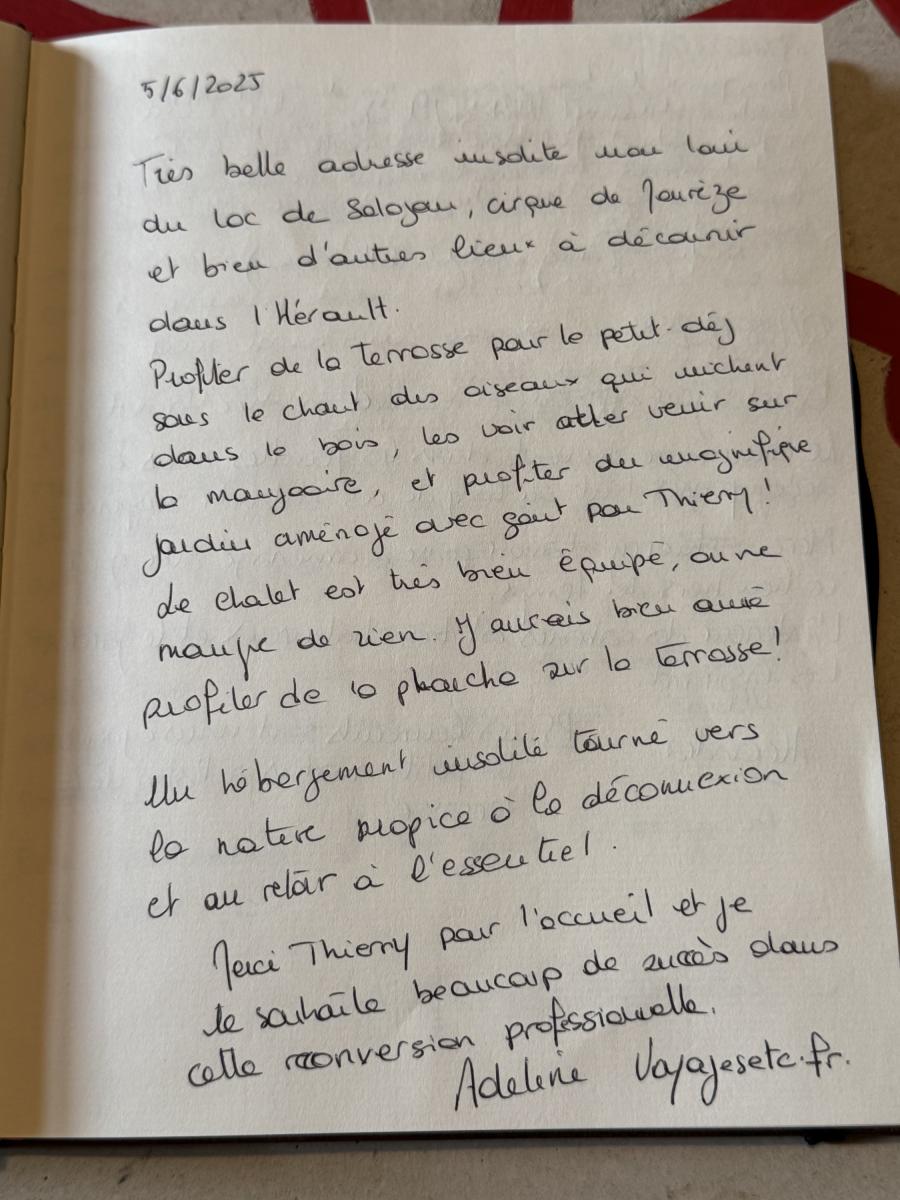 5/6/2025
Très belle adresse insolite non loin
du loc de Salagou, cirque de Mourèze
et bien d'autres lieux à découvrir
dans l'Hérault.
Profiter de la terrasse pour le petit-déj
sous le chant des oiseaux qui nichent
dans le bois, les voir aller venir sur
la mangeoire, et profiter du magnifique
jardin aménagé avec goût par Thierry !
Le chalet est très bien équipé, on ne
manque de rien. J'aurais bien aimé
profiter de la plancha sur la terrasse !
Un hébergement insolite tourné vers
la nature propice à la déconnexion
et au retour à l'essentiel.
Merci Thierry pour l'accueil et je
te souhaite beaucoup de succès dans
cette reconversion professionnelle.
Adeline Voyagesetc.fr.